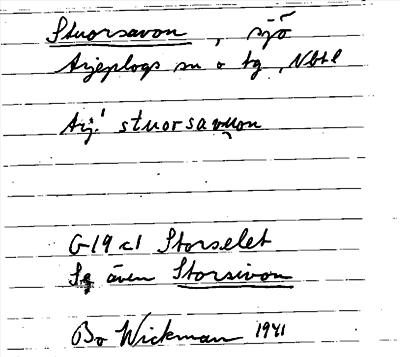 Stuorsavon, sjö
Arjeplogs sn o tg, Nbtl
Arj. stuorsavuon
G-19 c1 Storselet
Se även Storsivon
Bo Wickman 1941